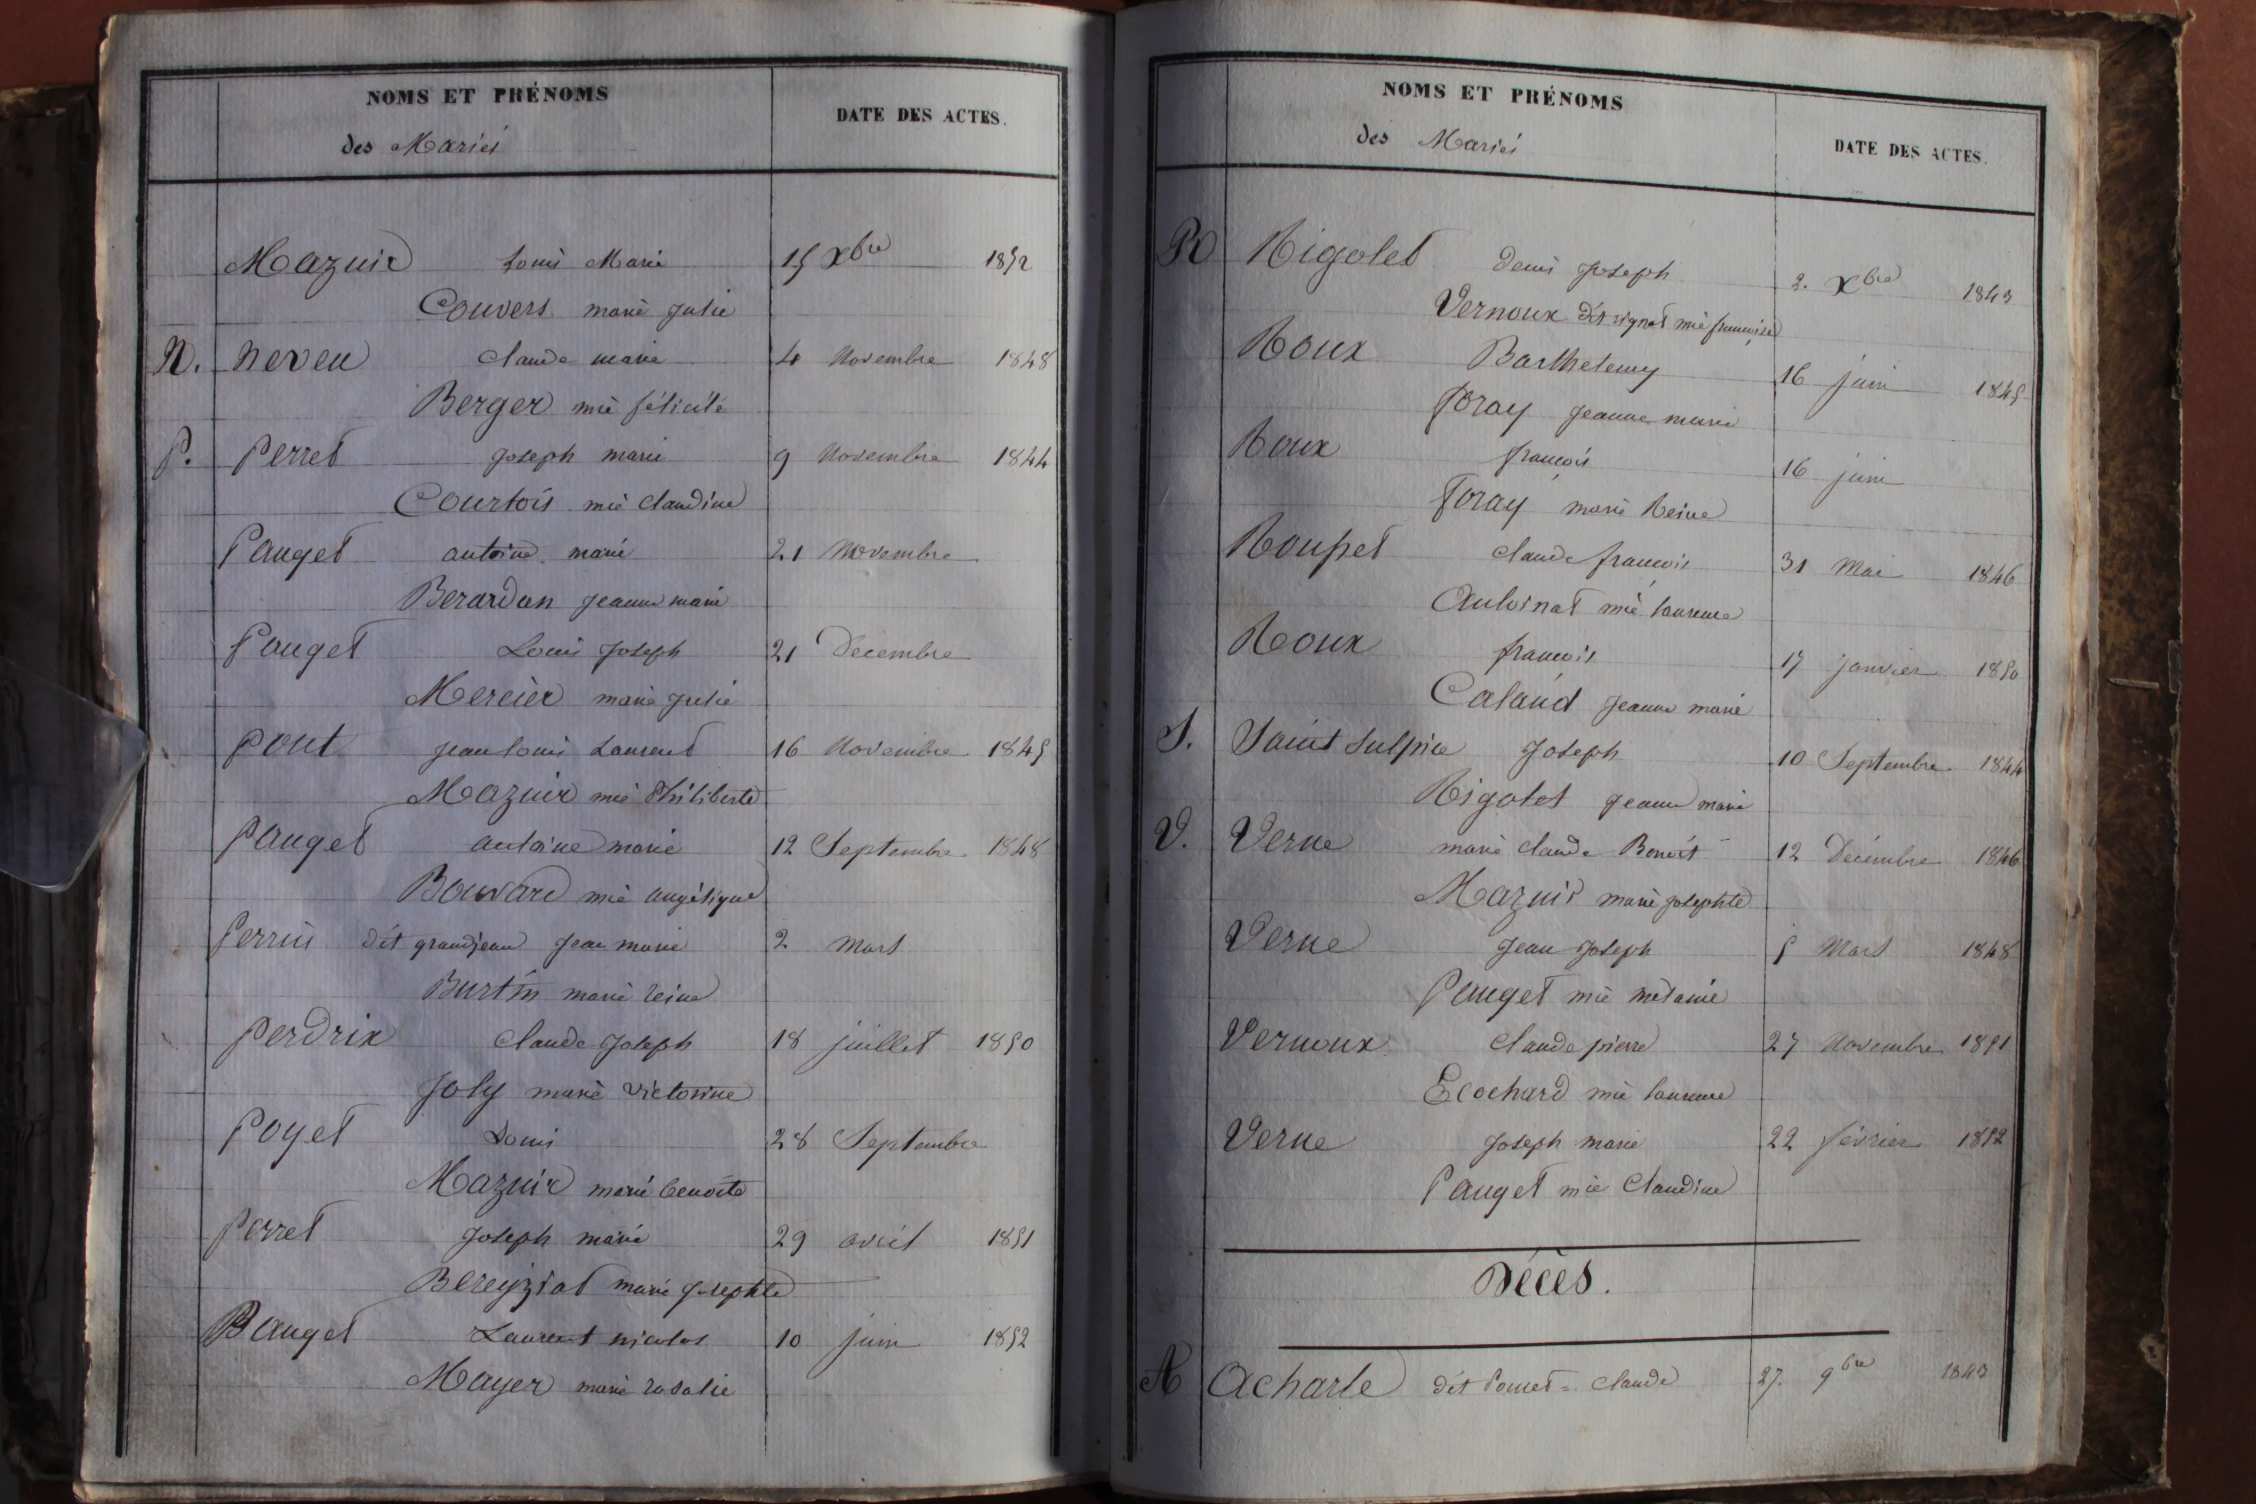 NOMS ET PRÉNOMS
DATE DES ACTES.
des Mariés
Mazuir Louis Marie 15 Xbre 1852
Couvers marie julie
N. Neveu claude marie 4 Novembre 1848
Berger mie félicité
P. Perret joseph marie 9 Novembre 1844
Courtois mie claudine
Pauget antoine marie 21 Novembre
Berardan jeanne marie
Pauget Louis joseph 21 Décembre
Mercier marie julie
Pont jean louis Laurent 16 Novembre 1845
Mazuir mie Philiberte
Pauget antoine marie 12 Septembre 1848
Bouvard mie angélique
Perrin dit grandjean jean marie 2 Mars
Burtin marie reine
Perdrix claude joseph 18 juillet 1850
Joly marie victorine
Poyet Louis 28 Septembre
Mazuir marie benoite
Perret joseph marie 29 avril 1851
Bereyziat marie josephte
Pauget Laurent nicolas 10 juin 1852
Mayer marie rosalie
NOMS ET PRÉNOMS
DATE DES ACTES.
des Mariés
R Rigolet denis joseph 2. Xbre 1843
Vernoux dit vignat mie françoise
Roux Barthelemy 16 juin 1845
foray jeanne marie
Roux françois 16 juin
foray marie Reine
Rousset claude françois 31 Mai 1846
Antoinat mie laurence
Roux françois 17 janvier 1850
Caland jeanne marie
S. Saint Sulpice joseph 10 Septembre 1844
Rigolet jeanne marie
V. Verne marie claude Benoit 12 Décembre 1846
Mazuir marie josephte
Verne jean joseph 5 Mars 1848
Pauget mie mélanie
Vernoux claude pierre 27 Novembre 1851
Ecochard mie laurence
Verne joseph marie 22 février 1852
Pauget mie Claudine
Décès.
A Acharle dit Poncet = claude 27. 9bre 1843